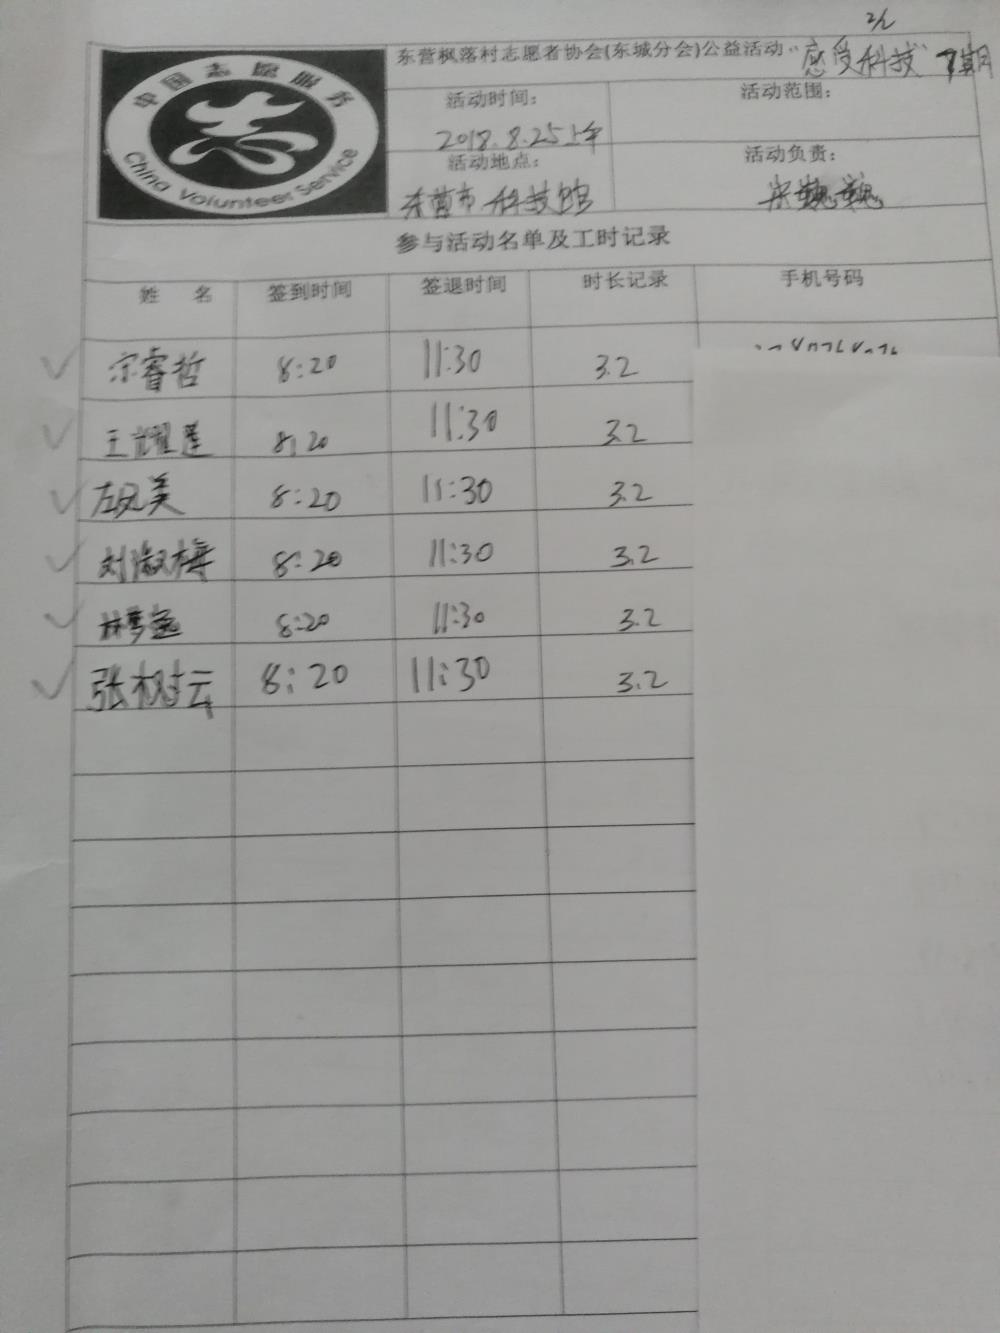 2/2
东营枫落村志愿者协会(东城分会)公益活动"感受科技"7期
中国志愿服务
China Volunteer Service
活动时间： 活动范围：
2018.8.25上午
活动地点： 活动负责：
东营市科技馆 宋巍巍
参与活动名单及工时记录
姓 名 签到时间 签退时间 时长记录 手机号码
宗睿哲 8:20 11:30 3.2
王耀莲 8:20 11:30 3.2
左凤美 8:20 11:30 3.2
刘淑梅 8:20 11:30 3.2
林梦逸 8:20 11:30 3.2
张树云 8:20 11:30 3.2